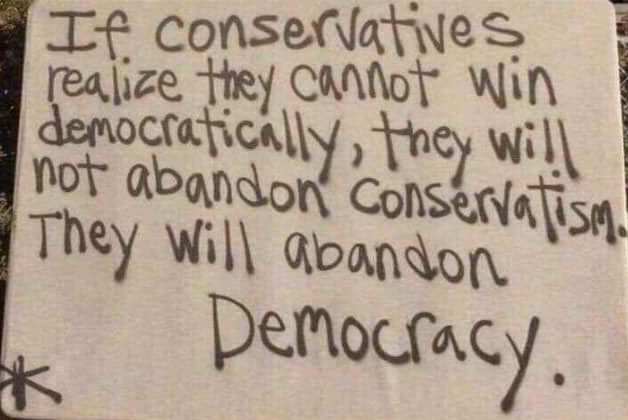 If conservatives
realize they cannot win
democratically, they will
not abandon conservatism.
They will abandon
Democracy.
*